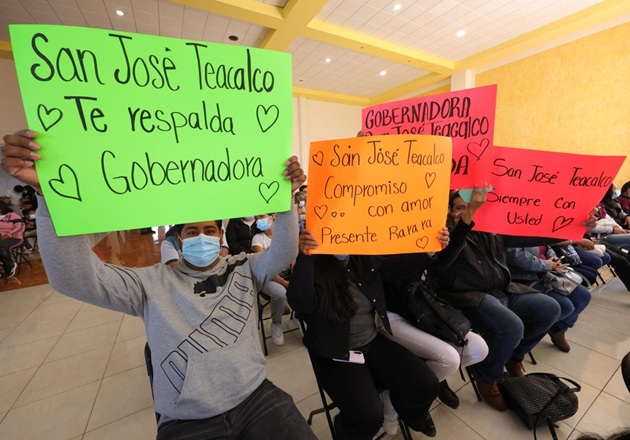 San José Teacalco
Te respalda
Gobernadora
San José Teacalco
Compromiso
con amor
Presente Rarara
GOBERNADORA
San José Teacalco
San José Teacalco
Siempre con
Usted
PUMA